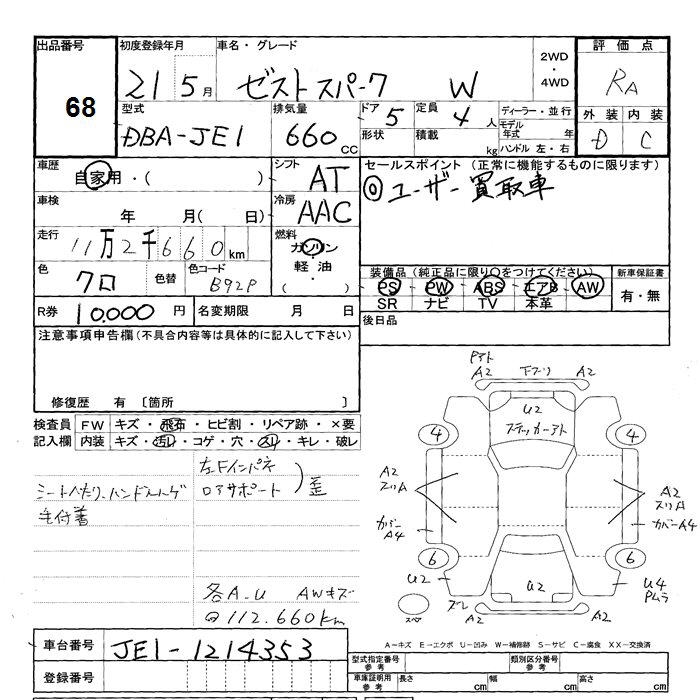 出品番号 初度登録年月 車名・グレード 2WD・4WD 評価点
68 21 5月 ゼスト スパーク W RA
型式 排気量 ドア 5 定員 4人 ディーラー・並行 外装 内装
DBA-JE1 660cc 形状 積載 kg モデル年式 年 D C
ハンドル 左・右
車歴 シフト セールスポイント (正常に機能するものに限ります)
自家用・( ) AT ◎ユーザー買取車
車検 冷房
年 月( 日) AAC
走行 燃料
11万2千660km ガソリン
軽油
・( )
色 色替 色コード 装備品 (純正品に限り○をつけてください) 新車保証書
クロ B92P PS PW ABS エアB AW 有・無
SR ナビ TV 本革
R券 10,000円 名変期限 月 日 後日品
注意事項申告欄(不具合内容等は具体的に記入して下さい)
修復歴 有 〔箇所 〕
検査員 FW キズ・飛石・ヒビ割・リペア跡・×要
記入欄 内装 キズ・汚れ・コゲ・穴・スリ・キレ・破レ
左Fインパネ
ロアサポート )歪
シートヘタリ、ハンドルハゲ
毛付着
各A-U AWキズ
@112.660km
A2 下ブリ A2
U2
ステッカーアト
4 4
A2 A2
スリA スリA
カバーA4 カバーA4
6 6
U2 U2 U4
ズレ
A2 A2
スペア
A−キズ E−エクボ U−凹み W−補修跡 S−サビ C−腐食 XX−交換済
車台番号 JE1-1214353
登録番号
型式指定番号 参考 類別区分番号 参考
車庫証明用 参考 長さ cm 幅 cm 高さ cm